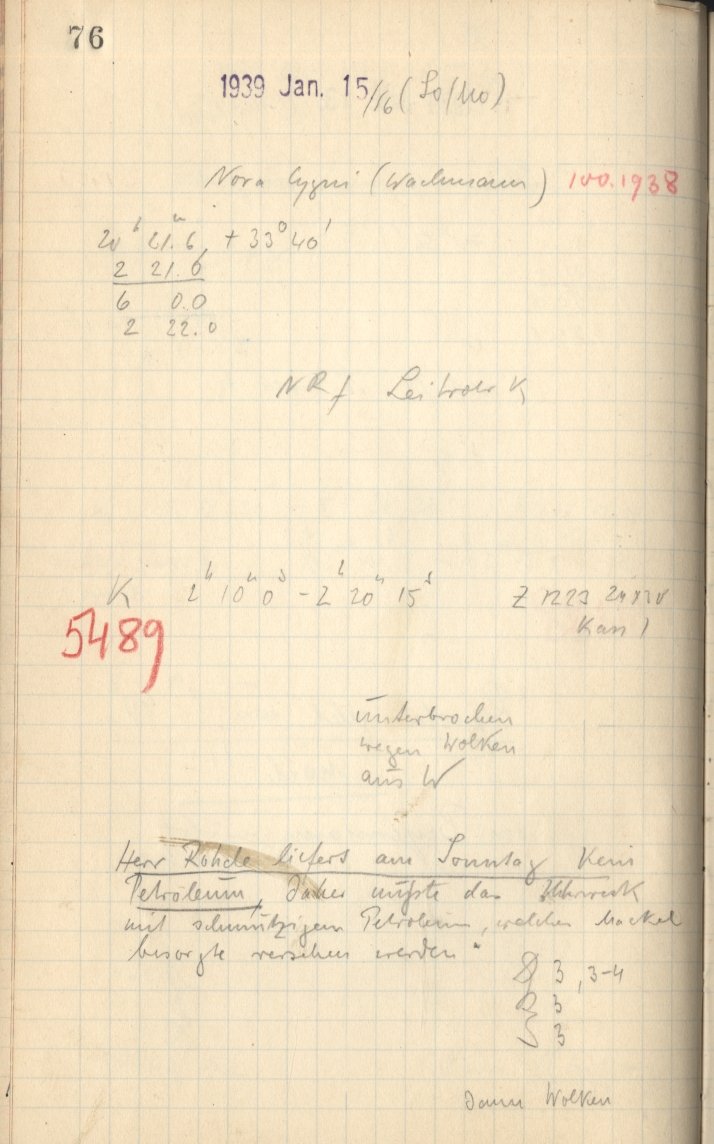 76
1939 Jan. 15/16 (So/Mo)
Nova Cygni (Wachmann) 100.1938
20h 21.m6, + 33° 40'
2 21.6
6 0.0
2 22.0
NRf Leitrohr K
K 2h 10m 0s - 2h 20m 15s Z 1223
Kass 1
5489
unterbrochen
wegen Wolken
aus W
Herr Rohde liefert am Sonntag kein
Petroleum, daher mußte das Uhrwerk
mit schmutzigem Petroleum, welches Mackel
besorgte versehen werden.
3, 3-4
3
3
Dann Wolken